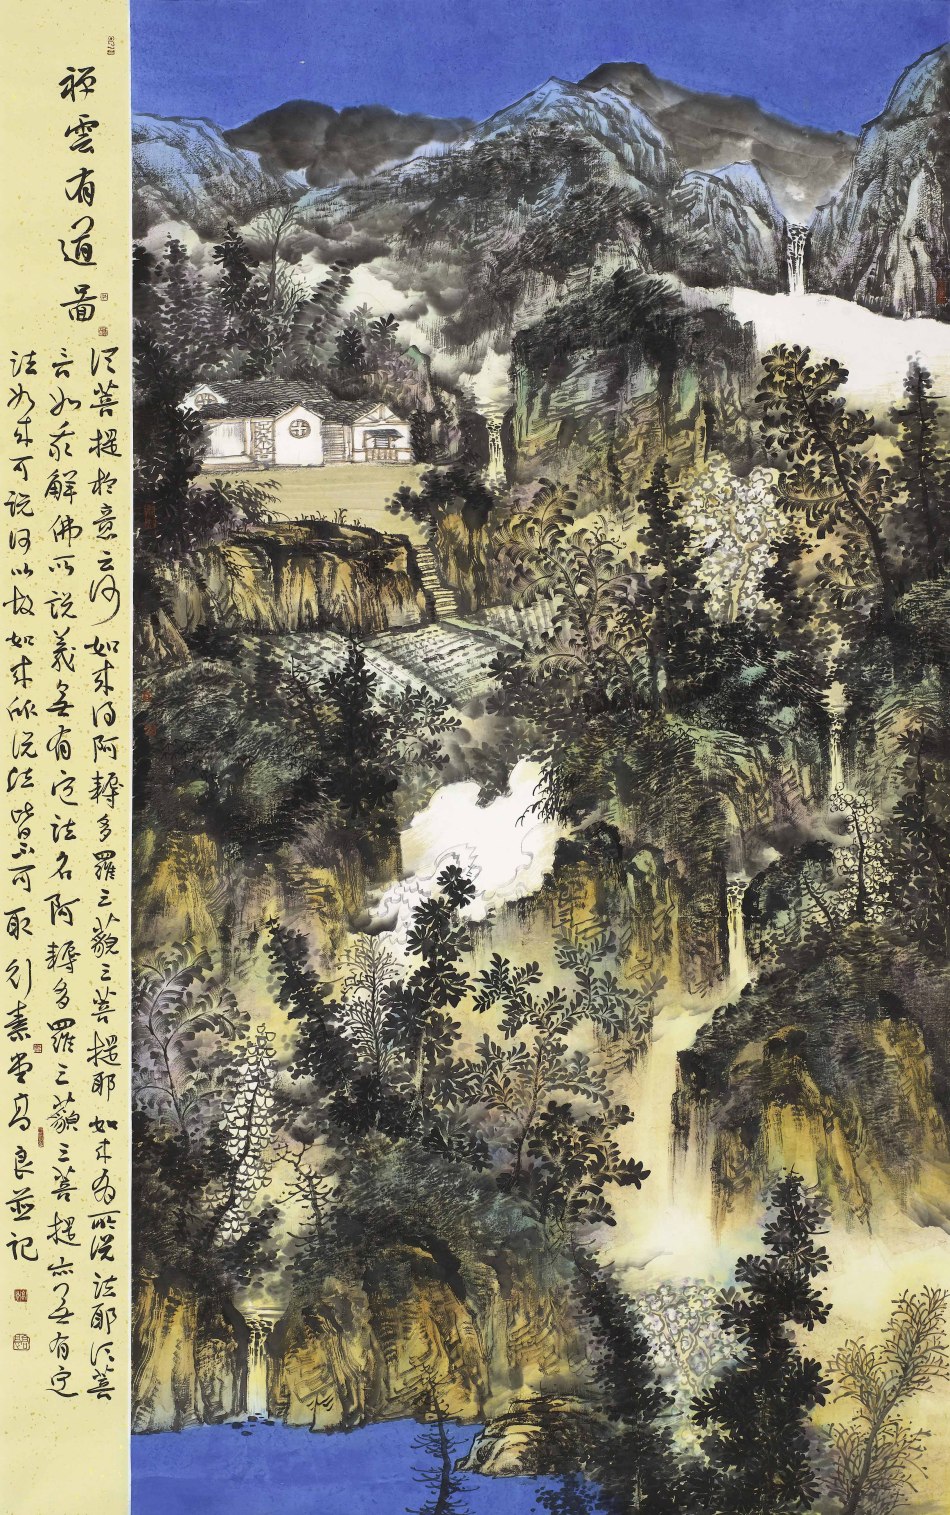 禪雲有道啚
須菩提於意云何如來得阿耨多羅三藐三菩提耶如來有所說法耶須菩
言如我解佛所說義無有定法名阿耨多羅三藐三菩提亦無有定
法如來可說何以故如來所說法皆不可取行素堂高良並記